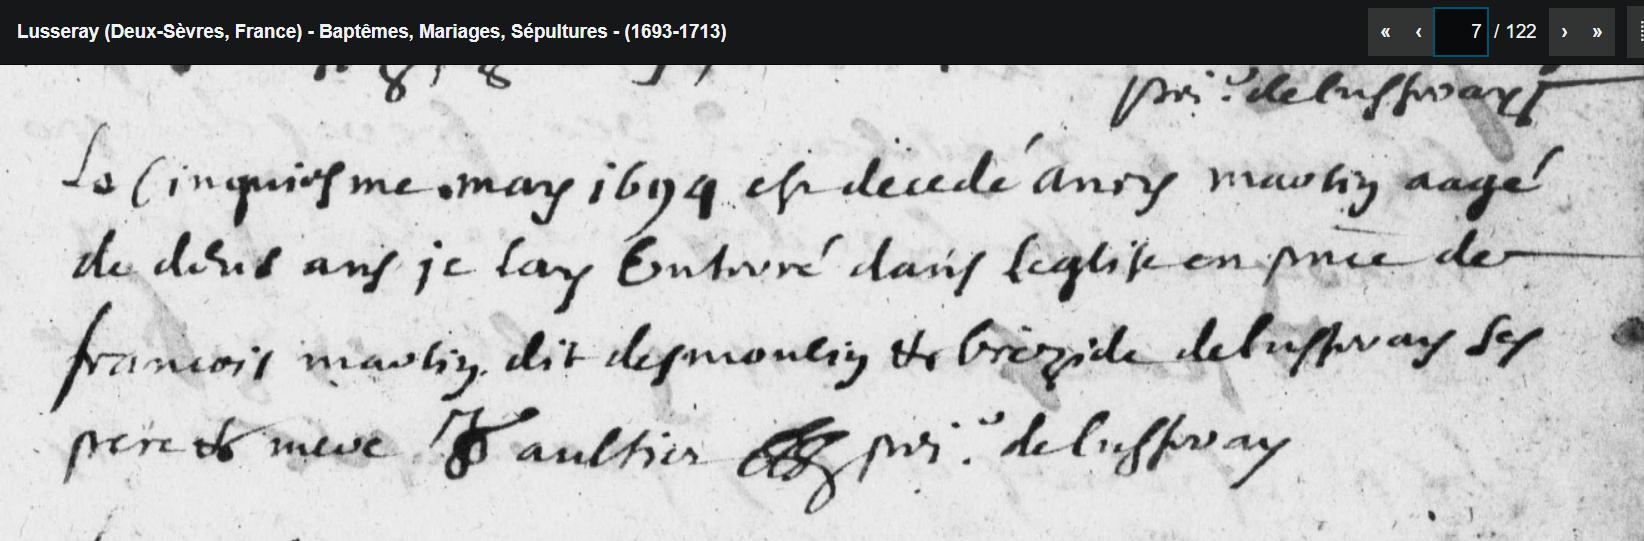 Lusseray (Deux-Sèvres, France) - Baptêmes, Mariages, Sépultures - (1693-1713)
« ‹ 7 / 122 › »
pri.r de lussray
Le Cinquiesme may 1694 est decedé anry martin aagé
de deus ans je lay Enterré dans leglise en pnce de
francois martin dit desmoulin & brigide de lussray ses
pere & mere Gaultier pri.r de lussray